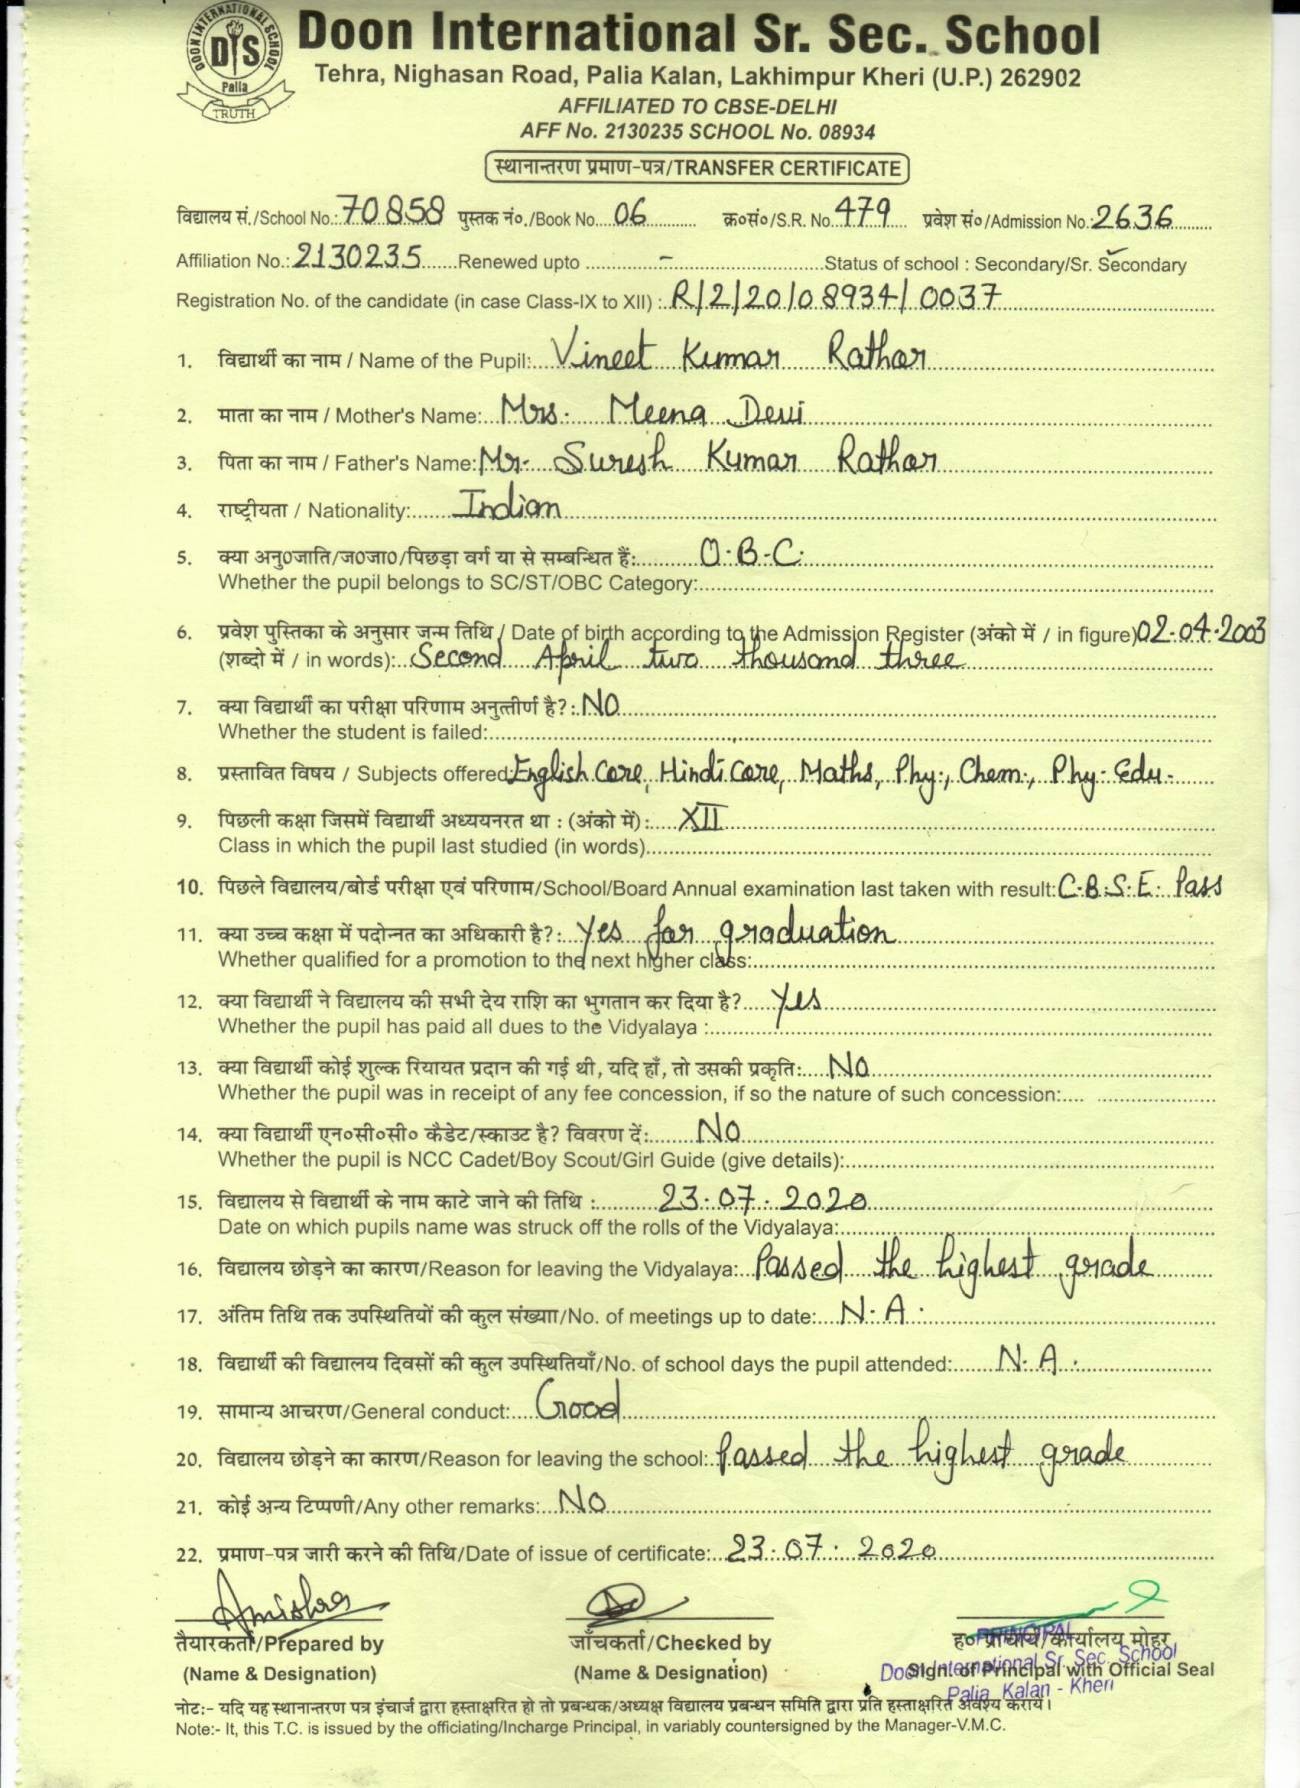 DOON INTERNATIONAL SCHOOL
DIS
Palia
TRUTH
Doon International Sr. Sec. School
Tehra, Nighasan Road, Palia Kalan, Lakhimpur Kheri (U.P.) 262902
AFFILIATED TO CBSE-DELHI
AFF No. 2130235 SCHOOL No. 08934
स्थानान्तरण प्रमाण-पत्र/TRANSFER CERTIFICATE
विद्यालय सं./School No.: 70858 पुस्तक नं०./Book No. 06 क्र०सं०/S.R. No. 479 प्रवेश सं०/Admission No.: 2636
Affiliation No.: 2130235 Renewed upto - Status of school : Secondary/Sr. Secondary
Registration No. of the candidate (in case Class-IX to XII) : R/2/20/08934/0037
1. विद्यार्थी का नाम / Name of the Pupil: Vineet Kumar Rathor
2. माता का नाम / Mother's Name: Mrs. Meena Devi
3. पिता का नाम / Father's Name: Mr. Suresh Kumar Rathor
4. राष्ट्रीयता / Nationality: Indian
5. क्या अनु०जाति/ज०जा०/पिछड़ा वर्ग या से सम्बन्धित हैं: O.B.C.
Whether the pupil belongs to SC/ST/OBC Category:
6. प्रवेश पुस्तिका के अनुसार जन्म तिथि / Date of birth according to the Admission Register (अंको में / in figure) 02.04.2003
(शब्दो में / in words): Second April two thousand three
7. क्या विद्यार्थी का परीक्षा परिणाम अनुत्तीर्ण है?: NO
Whether the student is failed:
8. प्रस्तावित विषय / Subjects offered: English Core, Hindi Core, Maths, Phy., Chem., Phy. Edu.
9. पिछली कक्षा जिसमें विद्यार्थी अध्ययनरत था : (अंको में): XII
Class in which the pupil last studied (in words)
10. पिछले विद्यालय/बोर्ड परीक्षा एवं परिणाम/School/Board Annual examination last taken with result: C.B.S.E. Pass
11. क्या उच्च कक्षा में पदोन्नत का अधिकारी है?: Yes for graduation
Whether qualified for a promotion to the next higher class:
12. क्या विद्यार्थी ने विद्यालय की सभी देय राशि का भुगतान कर दिया है? Yes
Whether the pupil has paid all dues to the Vidyalaya :
13. क्या विद्यार्थी कोई शुल्क रियायत प्रदान की गई थी, यदि हाँ, तो उसकी प्रकृति: No
Whether the pupil was in receipt of any fee concession, if so the nature of such concession:
14. क्या विद्यार्थी एन०सी०सी० कैडेट/स्काउट है? विवरण दें: NO
Whether the pupil is NCC Cadet/Boy Scout/Girl Guide (give details):
15. विद्यालय से विद्यार्थी के नाम काटे जाने की तिथि : 23.07.2020
Date on which pupils name was struck off the rolls of the Vidyalaya:
16. विद्यालय छोड़ने का कारण/Reason for leaving the Vidyalaya: Passed the highest grade
17. अंतिम तिथि तक उपस्थितियों की कुल संख्याा/No. of meetings up to date: N.A.
18. विद्यार्थी की विद्यालय दिवसों की कुल उपस्थितियाँ/No. of school days the pupil attended: N.A.
19. सामान्य आचरण/General conduct: Good
20. विद्यालय छोड़ने का कारण/Reason for leaving the school: Passed the highest grade
21. कोई अन्य टिप्पणी/Any other remarks: No
22. प्रमाण-पत्र जारी करने की तिथि/Date of issue of certificate: 23.07.2020
Amishra
तैयारकर्ता/Prepared by जाँचकर्ता/Checked by ह० प्राचार्य/कार्यालय मोहर
PRINCIPAL
(Name & Designation) (Name & Designation) Sign. of Principal with Official Seal
Doon International Sr. Sec. School
Palia Kalan - Kheri
नोटः- यदि यह स्थानान्तरण पत्र इंचार्ज द्वारा हस्ताक्षरित हो तो प्रबन्धक/अध्यक्ष विद्यालय प्रबन्धन समिति द्वारा प्रति हस्ताक्षरित अवश्य कराये।
Note:- It, this T.C. is issued by the officiating/Incharge Principal, in variably countersigned by the Manager-V.M.C.